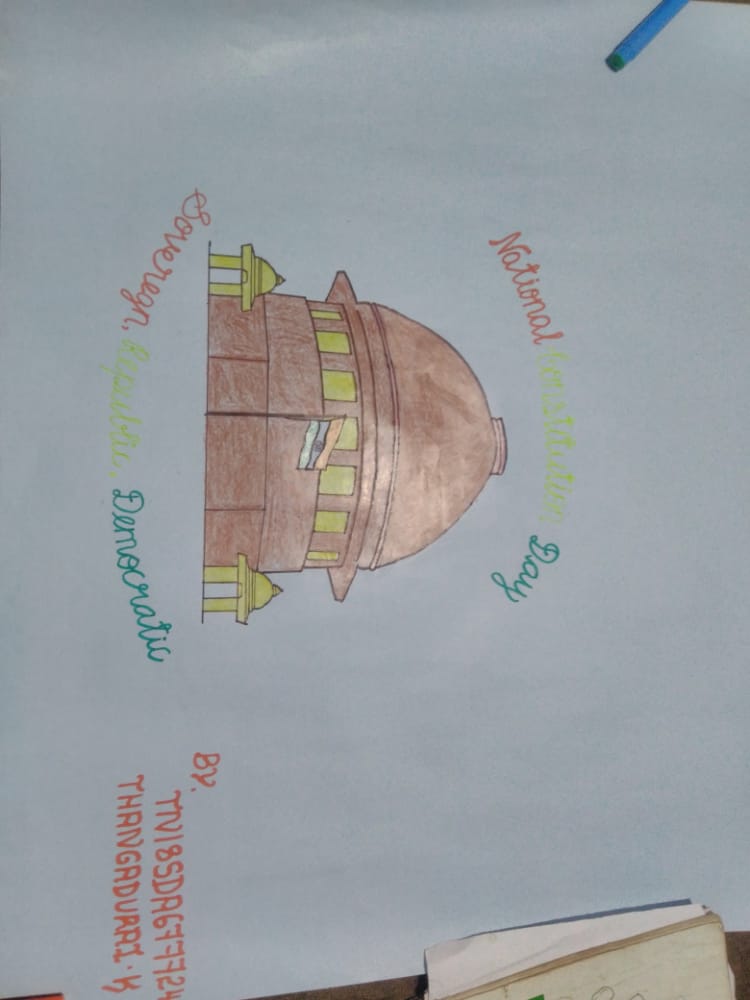 National Constitution Day
Soveregn, Republic, Democratic
BY.
TN18SDA677724
THANGADURAI.K